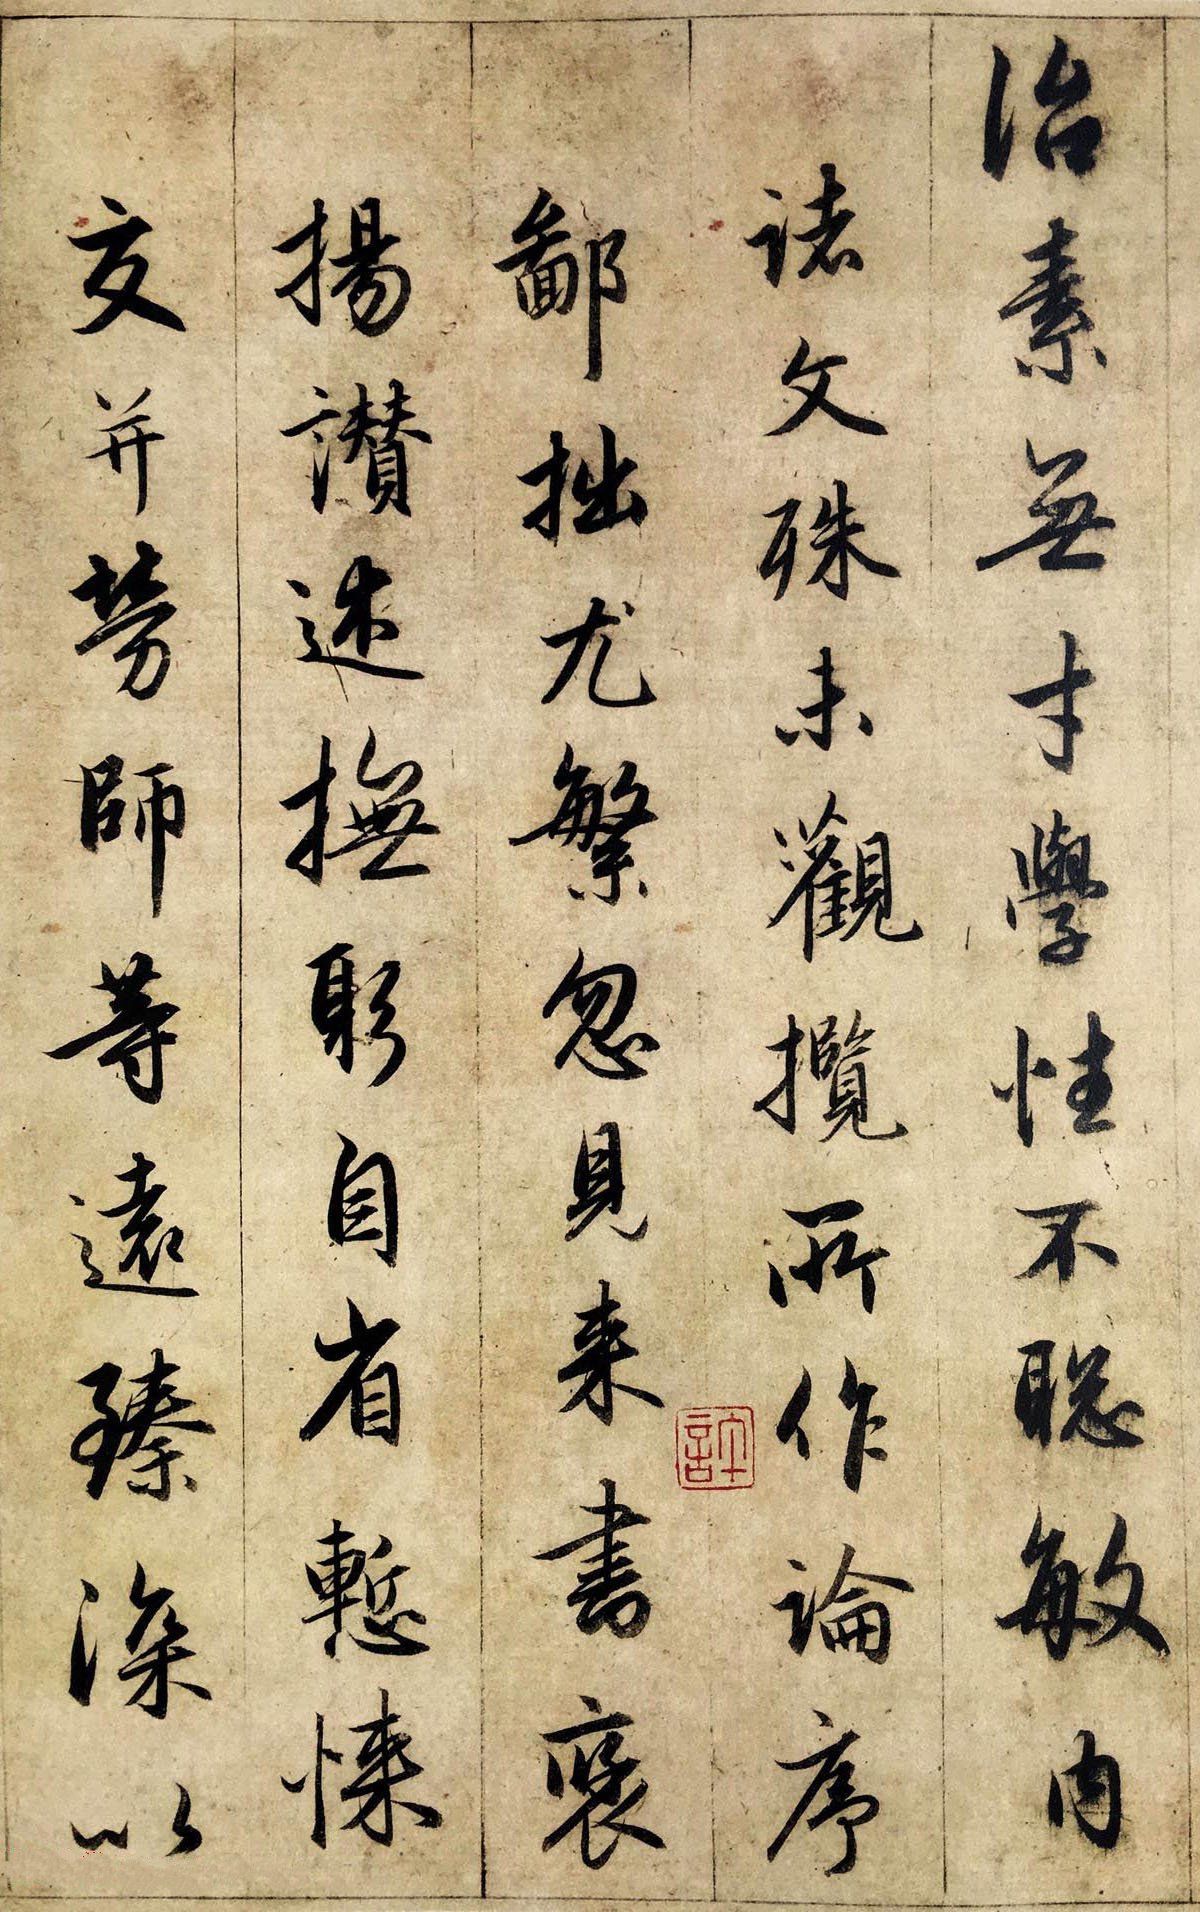 治素無才學性不聰敏內
諸文殊未觀攬所作論序
鄙拙尤繁忽見来書褒
揚讃述撫躬自省慙悚
交并勞師等遠臻深以